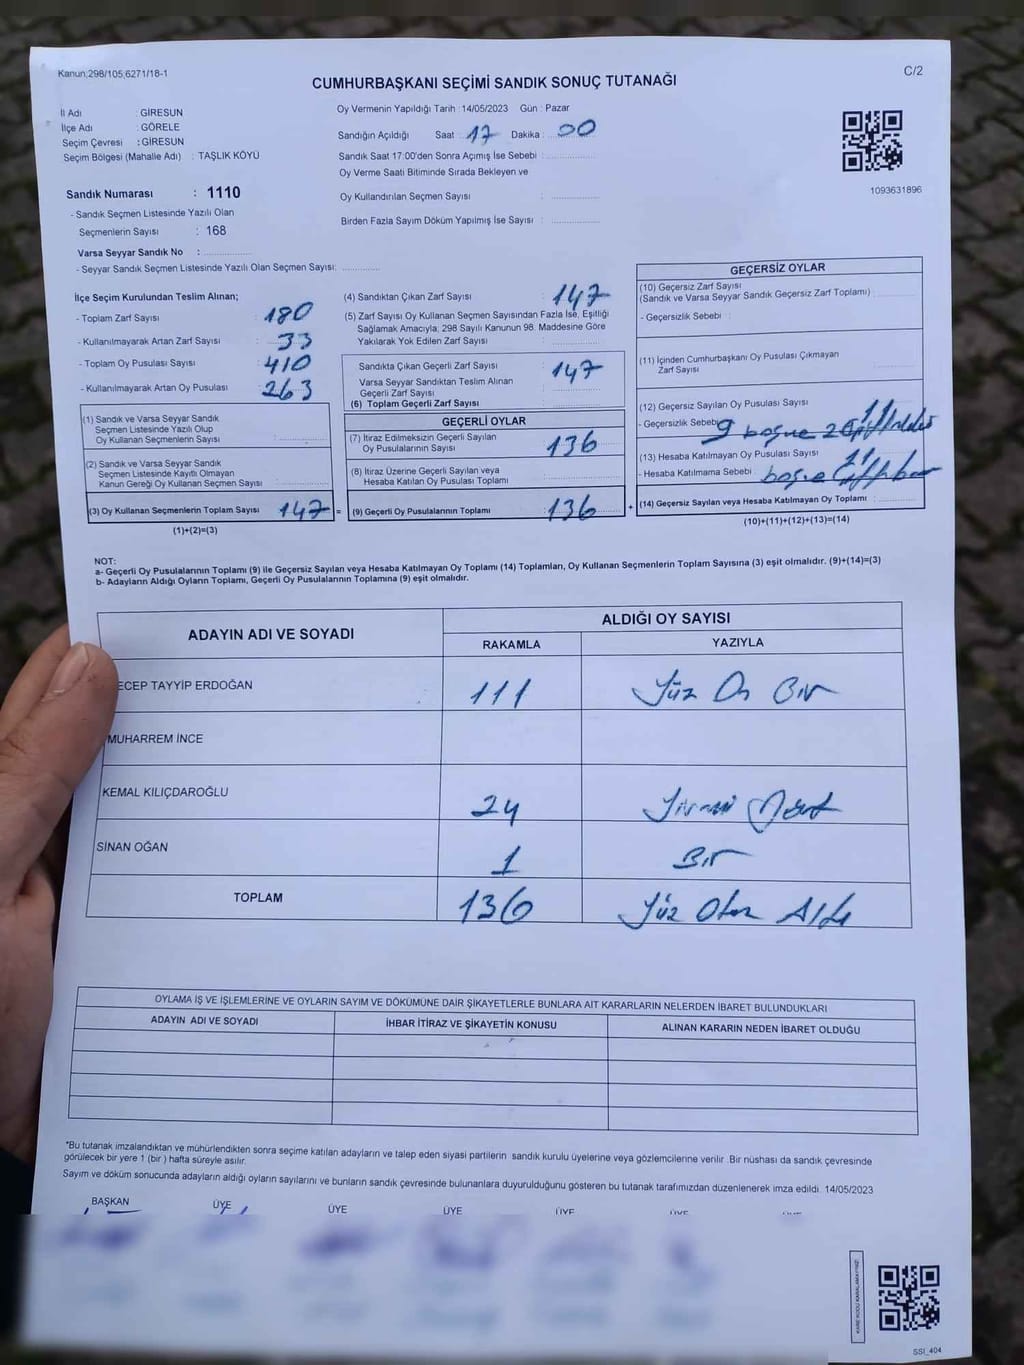 Kanun;298/105,6271/18-1
C/2
CUMHURBAŞKANI SEÇİMİ SANDIK SONUÇ TUTANAĞI
İl Adı : GİRESUN
İlçe Adı : GÖRELE
Seçim Çevresi : GİRESUN
Seçim Bölgesi (Mahalle Adı) : TAŞLIK KÖYÜ
Oy Vermenin Yapıldığı Tarih : 14/05/2023 Gün : Pazar
Sandığın Açıldığı Saat : 17 Dakika : 00
Sandık Saat 17:00'den Sonra Açımış İse Sebebi :
Oy Verme Saati Bitiminde Sırada Bekleyen ve
Oy Kullandırılan Seçmen Sayısı :
Birden Fazla Sayım Döküm Yapılmış İse Sayısı :
1093631896
Sandık Numarası : 1110
- Sandık Seçmen Listesinde Yazılı Olan
Seçmenlerin Sayısı : 168
Varsa Seyyar Sandık No :
- Seyyar Sandık Seçmen Listesinde Yazılı Olan Seçmen Sayısı:
İlçe Seçim Kurulundan Teslim Alınan;
- Toplam Zarf Sayısı : 180
- Kullanılmayarak Artan Zarf Sayısı : 33
- Toplam Oy Pusulası Sayısı : 410
- Kullanılmayarak Artan Oy Pusulası : 263
(1) Sandık ve Varsa Seyyar Sandık
Seçmen Listesinde Yazılı Olup
Oy Kullanan Seçmenlerin Sayısı :
(2) Sandık ve Varsa Seyyar Sandık
Seçmen Listesinde Kayıtlı Olmayan
Kanun Gereği Oy Kullanan Seçmen Sayısı :
(3) Oy Kullanan Seçmenlerin Toplam Sayısı : 147 =
(1)+(2)=(3)
(4) Sandıktan Çıkan Zarf Sayısı : 147
(5) Zarf Sayısı Oy Kullanan Seçmen Sayısından Fazla İse, Eşitliği
Sağlamak Amacıyla; 298 Sayılı Kanunun 98. Maddesine Göre
Yakılarak Yok Edilen Zarf Sayısı :
Sandıkta Çıkan Geçerli Zarf Sayısı : 147
Varsa Seyyar Sandıktan Teslim Alınan
Geçerli Zarf Sayısı :
(6) Toplam Geçerli Zarf Sayısı :
GEÇERLİ OYLAR
(7) İtiraz Edilmeksizin Geçerli Sayılan
Oy Pusulalarının Sayısı : 136
(8) İtiraz Üzerine Geçerli Sayılan veya
Hesaba Katılan Oy Pusulası Toplamı :
(9) Geçerli Oy Pusulalarının Toplamı : 136 +
GEÇERSİZ OYLAR
(10) Geçersiz Zarf Sayısı
(Sandık ve Varsa Seyyar Sandık Geçersiz Zarf Toplamı) :
- Geçersizlik Sebebi :
(11) İçinden Cumhurbaşkanı Oy Pusulası Çıkmayan
Zarf Sayısı :
(12) Geçersiz Sayılan Oy Pusulası Sayısı : 11
- Geçersizlik Sebebi : 9
(13) Hesaba Katılmayan Oy Pusulası Sayısı : 11
- Hesaba Katılmama Sebebi :
(14) Geçersiz Sayılan veya Hesaba Katılmayan Oy Toplamı :
(10)+(11)+(12)+(13)=(14)
NOT:
a- Geçerli Oy Pusulalarının Toplamı (9) ile Geçersiz Sayılan veya Hesaba Katılmayan Oy Toplamı (14) Toplamları, Oy Kullanan Seçmenlerin Toplam Sayısına (3) eşit olmalıdır. (9)+(14)=(3)
b- Adayların Aldığı Oyların Toplamı, Geçerli Oy Pusulalarının Toplamına (9) eşit olmalıdır.
ADAYIN ADI VE SOYADI ALDIĞI OY SAYISI
RAKAMLA YAZIYLA
ECEP TAYYİP ERDOĞAN 111 Yüz On Bir
MUHARREM İNCE
KEMAL KILIÇDAROĞLU 24 Yirmi Dört
SİNAN OĞAN 1 Bir
TOPLAM 136 Yüz Otuz Altı
OYLAMA İŞ VE İŞLEMLERİNE VE OYLARIN SAYIM VE DÖKÜMÜNE DAİR ŞİKAYETLERLE BUNLARA AİT KARARLARIN NELERDEN İBARET BULUNDUKLARI
ADAYIN ADI VE SOYADI İHBAR İTİRAZ VE ŞİKAYETİN KONUSU ALINAN KARARIN NEDEN İBARET OLDUĞU
*Bu tutanak imzalandıktan ve mühürlendikten sonra seçime katılan adayların ve talep eden siyasi partilerin sandık kurulu üyelerine veya gözlemcilerine verilir .Bir nüshası da sandık çevresinde
görülecek bir yere 1 (bir ) hafta süreyle asılır.
Sayım ve döküm sonucunda adayların aldığı oyların sayılarını ve bunların sandık çevresinde bulunanlara duyurulduğunu gösteren bu tutanak tarafımızdan düzenlenerek imza edildi. 14/05/2023
BAŞKAN ÜYE ÜYE ÜYE ÜYE ÜYE
KARE KODU KARALAMAYINIZ!
SSI_404